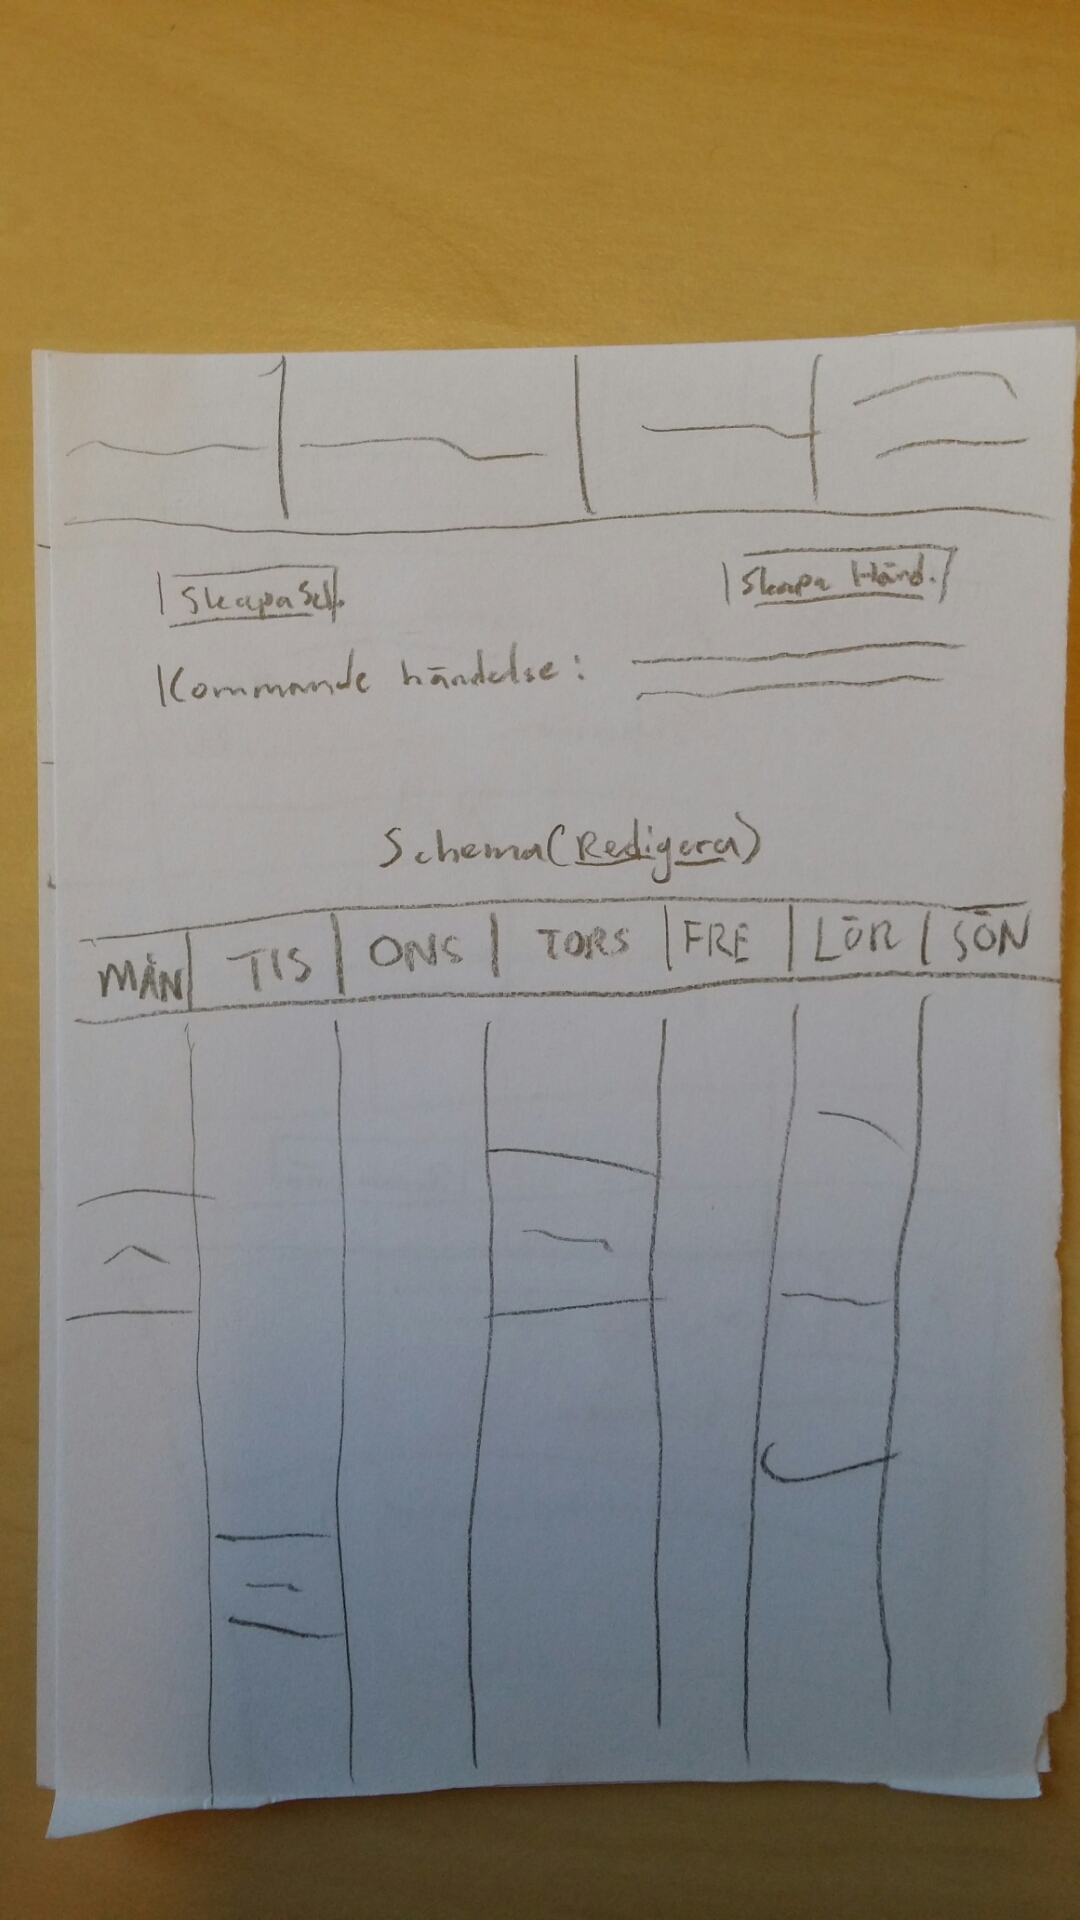 Skapa Sch.
Skapa Händ.
Kommande händelse:
Schema (Redigera)
MÅN TIS ONS TORS FRE LÖR SÖN